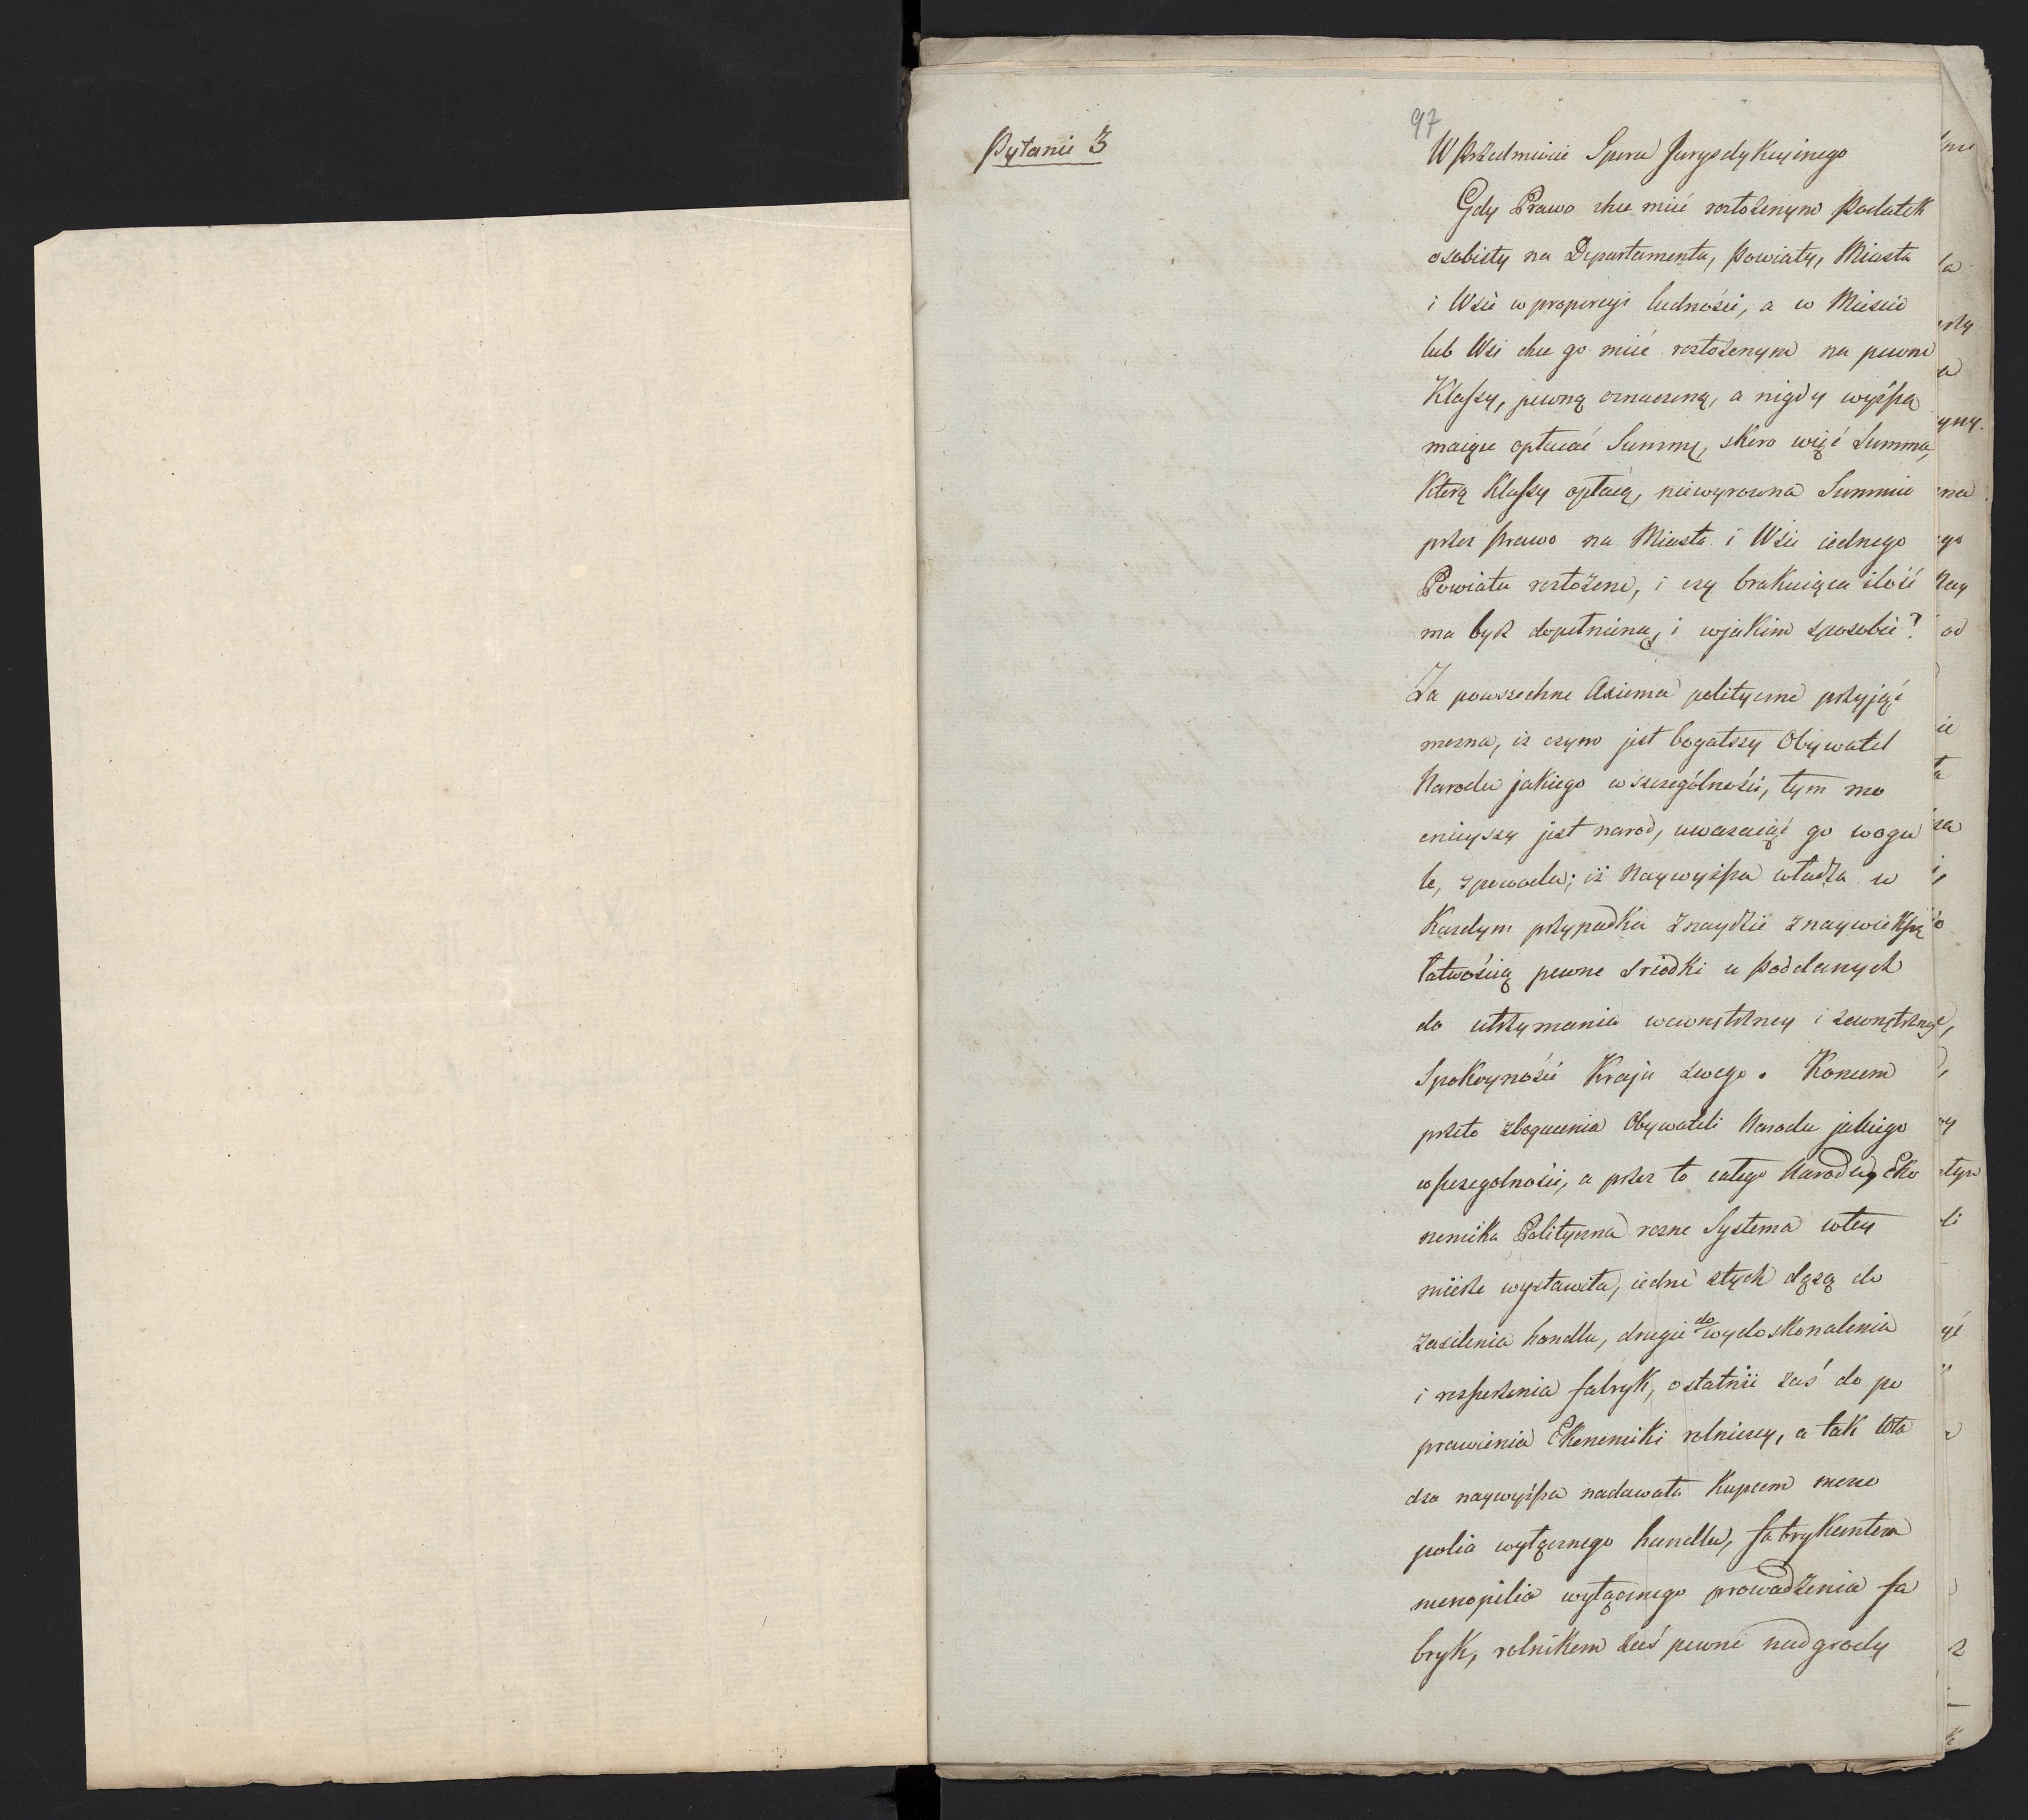 97
Pytanie 3
W Przedmiocie Sporu Jurysdykcyinego
Gdy Prawo chce mieć rozłożonym Podatek
osobisty na Departamenta, Powiaty, Miasta
i Wsie w proporcyi ludności, a w Mieście
lub Wsi chce go mieć rozłożonym na pewne
Klassy, pewną oznaczoną, a nigdy wyższą
maiące opłacać Summę, skoro więc Summa,
Którą Klassy opłacą, niewyrowna Summie
przez Prawo na Miasta i Wsie iednego
Powiatu rozłożone, i czy brakuiąca ilość
ma być dopełnioną, i wjakim sposobie?
Za powszechne Axioma polityczne przyjąć
mozna, iz czym jest bogatszy Obywatel
Narodu jakiego w szczególności, tym mo
cnieyszy jest narod, uwazaiąć go wogu
le, zpowodu; iż Naywyższa władza w
Kazdym przypadku znaydzie znaywiekszą
łatwością pewne srżodki u Poddanych
do utrzymania wewnętrzney i zewnętrzney
Spokoyności Kraju swego. Koncem
przeto zbogacenia Obywateli Narodu jakiego
wszczegolności, a przez to całego Narodu, Eko
nomika Polityczna rozne Systema wtey
mierze wystawiła, iedne ztych dążą do
zasilenia handlu, drugie do wydoskonalenia
i rozszerzenia fabryk, ostatnie zaś do po
prawienia Ekonomiki rolniczey, a tak Wła
dza naywyższa nadawała Kupcom mono
polia wyłącznego handlu, fabrykantom
monopolia wyłącznego prowadzenia fa
bryk, rolnikom zaś pewne nadgrody